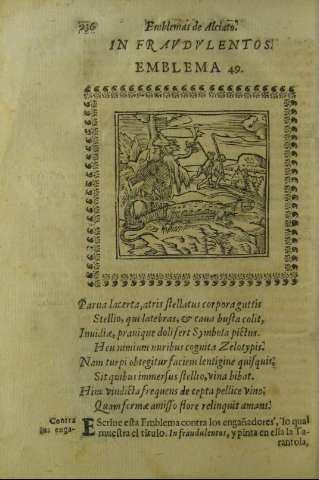 236 Emblemas de Alciato.
IN FRAVDVLENTOS.
EMBLEMA 49.
Parua lacerta, atris stellatus corpora guttis
Stellio, qui latebras, & caua busta colit,
Inuidiæ, prauique doli fert Symbola pictus.
Heu nimium nuribus cognita Zelotypis.
Nam turpi obtegitur faciem lentigine quisquis
Sit quibus immersus stellio, vina bibat.
Hinc vindicta frequens decepta pellice vino,
Quam formæ amisso flore relinquit amans.
Contra
los enga-
EScriue esta Emblema contra los engañadores, lo qual
muestra el titulo. In fraudulentos, y pinta en ella la Ta-
rantola,